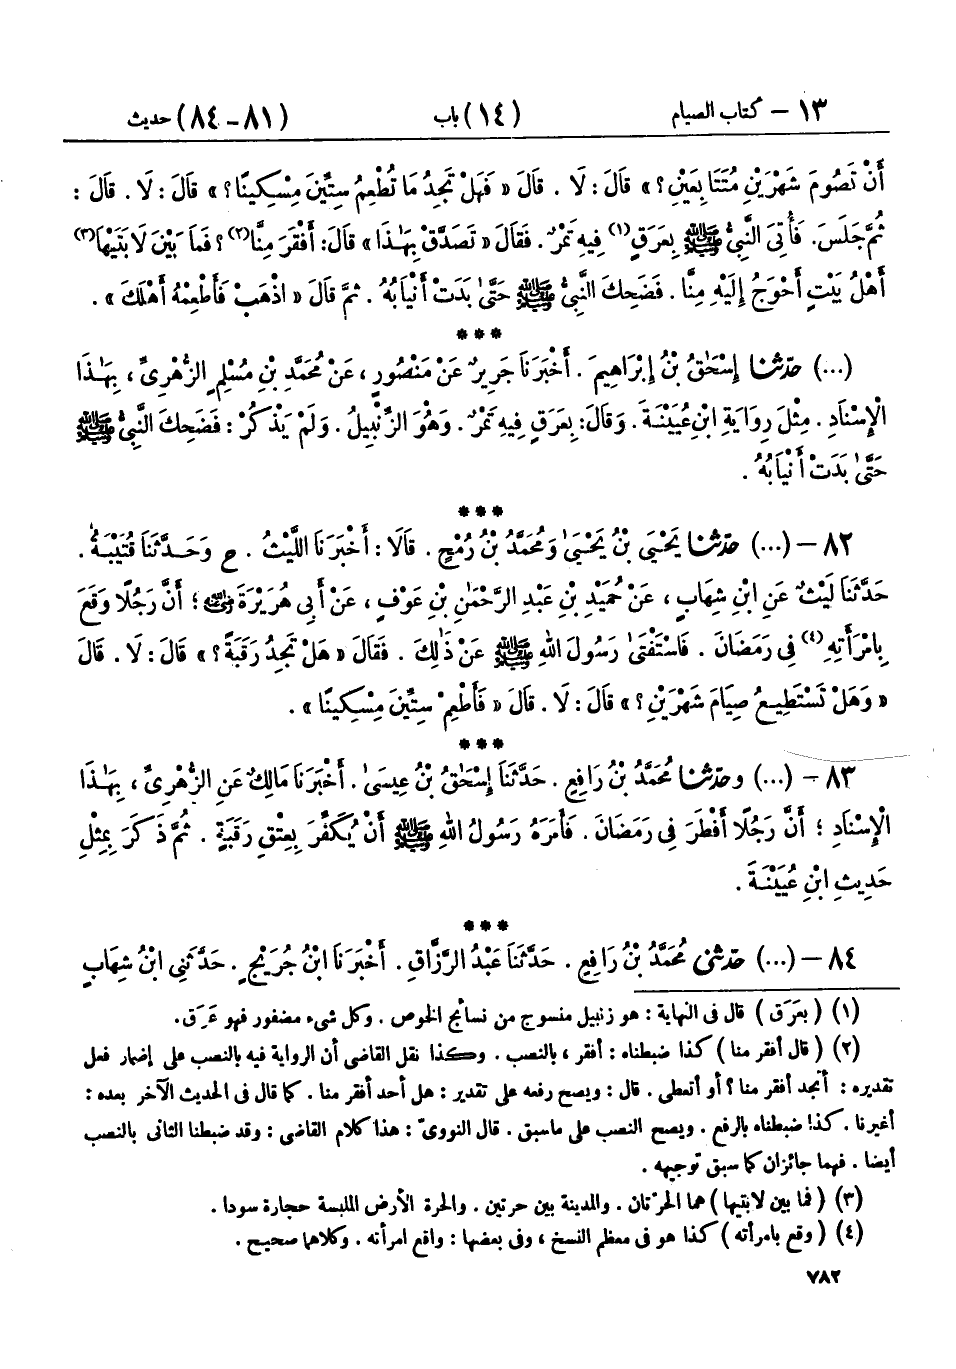 ١٣ - كتاب الصيام (١٤) باب (٨١-٨٤) حديث
أَنْ تَصُومَ شَهْرَيْنِ مُتَتَابِعَيْنِ؟» قَالَ: لَا. قَالَ «فَهَلْ تَجِدُ مَا تُطْعِمُ سِتِّينَ مِسْكِينًا؟» قَالَ: لَا. قَالَ:
ثُمَّ جَلَسَ. فَأُتِيَ النَّبِيُّ ﷺ بِعَرَقٍ(١) فِيهِ تَمْرٌ. فَقَالَ «تَصَدَّقْ بِهَٰذَا» قَالَ: أَفْقَرَ مِنَّا(٢)؟ فَمَا بَيْنَ لَابَتَيْهَا(٣)
أَهْلُ بَيْتٍ أَحْوَجُ إِلَيْهِ مِنَّا. فَضَحِكَ النَّبِيُّ ﷺ حَتَّىٰ بَدَتْ أَنْيَابُهُ. ثُمَّ قَالَ «اذْهَبْ فَأَطْعِمْهُ أَهْلَكَ».
***
(...) حدّثنا إِسْحَٰقُ بْنُ إِبْرَاهِيمَ. أَخْبَرَنَا جَرِيرٌ عَنْ مَنْصُورٍ، عَنْ مُحَمَّدِ بْنِ مُسْلِمٍ الزُّهْرِىِّ، بِهَٰذَا
الْإِسْنَادِ. مِثْلَ رِوَايَةِ ابْنِ عُيَيْنَةَ. وَقَالَ: بِعَرَقٍ فِيهِ تَمْرٌ. وَهُوَ الزِّنْبِيلُ. وَلَمْ يَذْكُرْ: فَضَحِكَ النَّبِيُّ ﷺ
حَتَّىٰ بَدَتْ أَنْيَابُهُ.
***
٨٢ - (...) حدّثنا يَحْيَىٰ بْنُ يَحْيَىٰ وَمُحَمَّدُ بْنُ رُمْحٍ. قَالَا: أَخْبَرَنَا اللَّيْثُ. ح وَحَدَّثَنَا قُتَيْبَةُ.
حَدَّثَنَا لَيْثٌ عَنِ ابْنِ شِهَابٍ، عَنْ حُمَيْدِ بْنِ عَبْدِ الرَّحْمَٰنِ بْنِ عَوْفٍ، عَنْ أَبِي هُرَيْرَةَ رضي الله عنه؛ أَنَّ رَجُلًا وَقَعَ
بِامْرَأَتِهِ(٤) فِي رَمَضَانَ. فَاسْتَفْتَىٰ رَسُولَ اللهِ ﷺ عَنْ ذَٰلِكَ. فَقَالَ «هَلْ تَجِدُ رَقَبَةً؟» قَالَ: لَا. قَالَ
«وَهَلْ تَسْتَطِيعُ صِيَامَ شَهْرَيْنِ؟» قَالَ: لَا. قَالَ «فَأَطْعِمْ سِتِّينَ مِسْكِينًا».
***
٨٣ - (...) وحدّثنا مُحَمَّدُ بْنُ رَافِعٍ. حَدَّثَنَا إِسْحَٰقُ بْنُ عِيسَىٰ. أَخْبَرَنَا مَالِكٌ عَنِ الزُّهْرِىِّ، بِهَٰذَا
الْإِسْنَادِ؛ أَنَّ رَجُلًا أَفْطَرَ فِي رَمَضَانَ. فَأَمَرَهُ رَسُولُ اللهِ ﷺ أَنْ يُكَفِّرَ بِعِتْقِ رَقَبَةٍ. ثُمَّ ذَكَرَ بِمِثْلِ
حَدِيثِ ابْنِ عُيَيْنَةَ.
***
٨٤ - (...) حدّثنى مُحَمَّدُ بْنُ رَافِعٍ. حَدَّثَنَا عَبْدُ الرَّزَّاقِ. أَخْبَرَنَا ابْنُ جُرَيْجٍ. حَدَّثَنِي ابْنُ شِهَابٍ
(١) (بعَرَق) قال فى النهاية: هو زنبيل منسوج من نسائج الخوص. وكل شىء مضفور فهو عَرَق.
(٢) (قال أفقر منا) كذا ضبطناه: أفقر، بالنصب. وكذا نقل القاضى أن الرواية فيه بالنصب على إضمار فعل
تقديره: أتجد أفقر منا؟ أو أتعطى. قال: ويصح رفعه على تقدير: هل أحد أفقر منا. كما قال فى الحديث الآخر بعده:
أغيرنا. كذا ضبطناه بالرفع. ويصح النصب على ماسبق. قال النووىّ: هذا كلام القاضى: وقد ضبطنا الثانى بالنصب
أيضا. فهما جائزان كما سبق توجيهه.
(٣) (فما بين لابتيها) هما الحرّتان. والمدينة بين حرتين. والحرة الأرض الملبسة حجارة سودا.
(٤) (وقع بامرأته) كذا هو فى معظم النسخ، وفى بعضها: واقع امرأته. وكلاهما صحيح.
٧٨٢